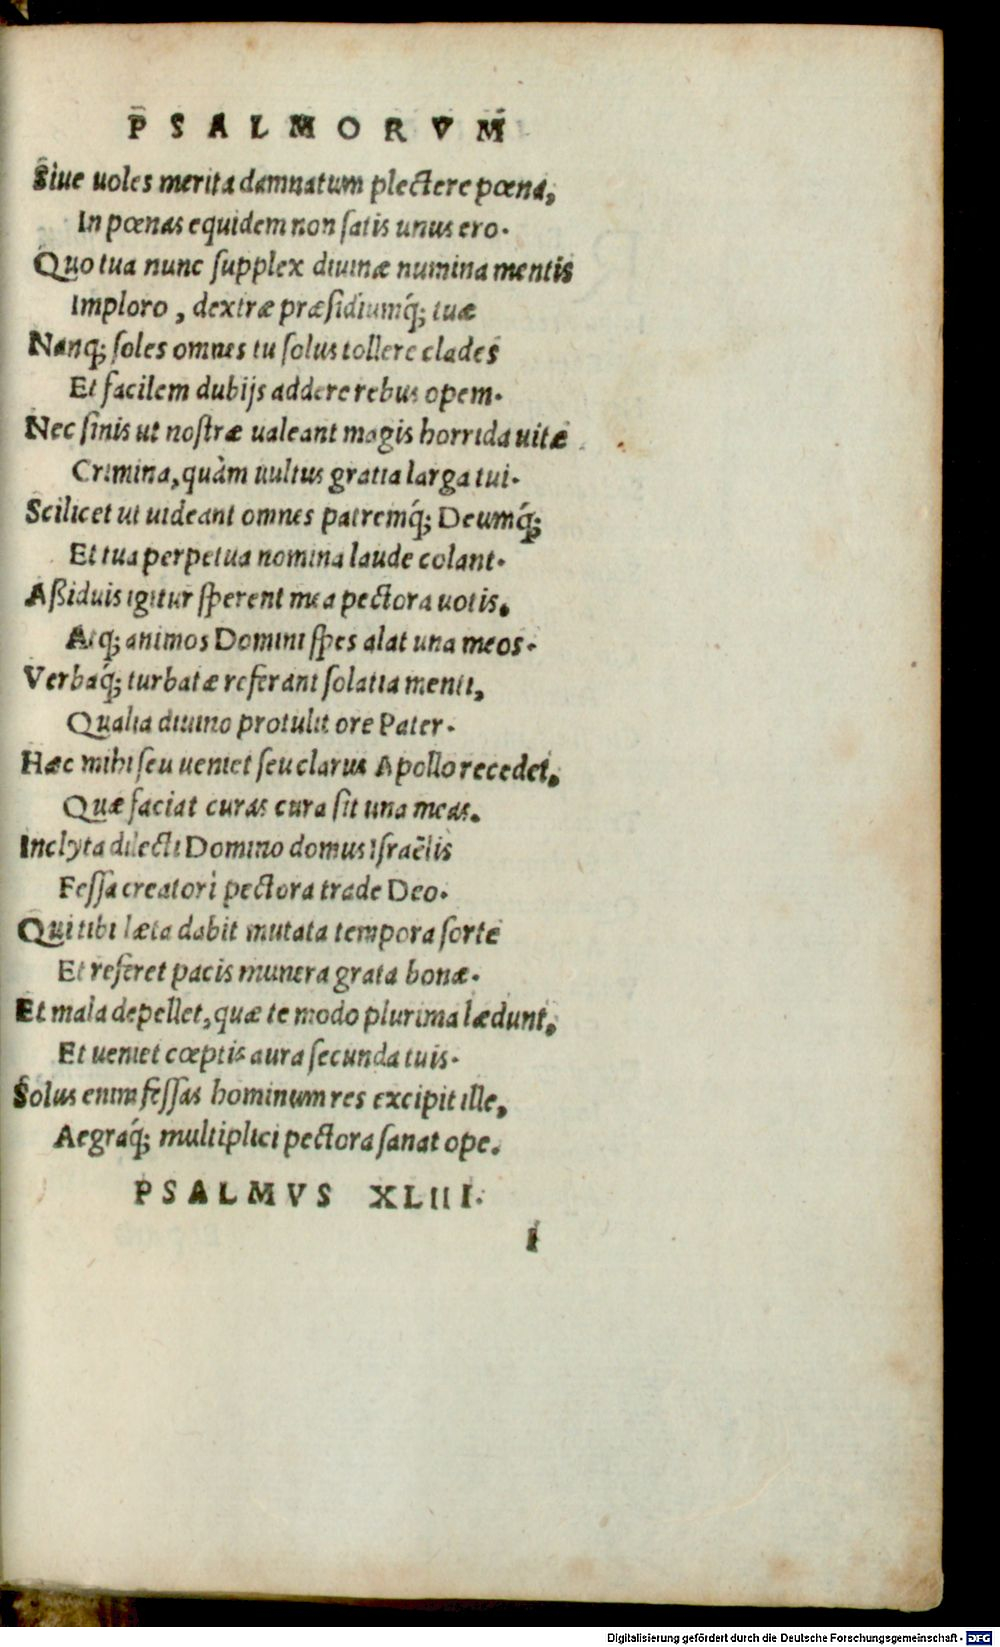 PSALMORVM
Siue uoles merita damnatum plectere pœna,
In pœnas equidem non ſatis unus ero.
Quo tua nunc ſupplex diuinæ numina mentis
Imploro, dextræ præſidiumq́; tuæ
Nanq; ſoles omnes tu ſolus tollere clades
Et facilem dubijs addere rebus opem.
Nec ſinis ut noſtræ ualeant magis horrida uitæ
Crimina, quàm uultus gratia larga tui.
Scilicet ut uideant omnes patremq́; Deumq́;
Et tua perpetua nomina laude colant.
Aßiduis igitur ſperent mea pectora uotis,
Atq; animos Domini ſpes alat una meos.
Verbaq́; turbatæ referant ſolatia menti,
Qualia diuino protulit ore Pater.
Hæc mihi ſeu ueniet ſeu clarus Apollo recedet,
Quæ faciat curas cura ſit una meas.
Inclyta dilecti Domino domus Iſraëlis
Feſſa creatori pectora trade Deo.
Qui tibi læta dabit mutata tempora ſorte
Et referet pacis munera grata bonæ.
Et mala depellet, quæ te modo plurima lædunt,
Et ueniet cœptis aura ſecunda tuis.
Solus enim feſſas hominum res excipit ille,
Aegraq́; multiplici pectora ſanat ope.
PSALMVS XLIII.
I
Digitalisierung gefördert durch die Deutsche Forschungsgemeinschaft - DFG